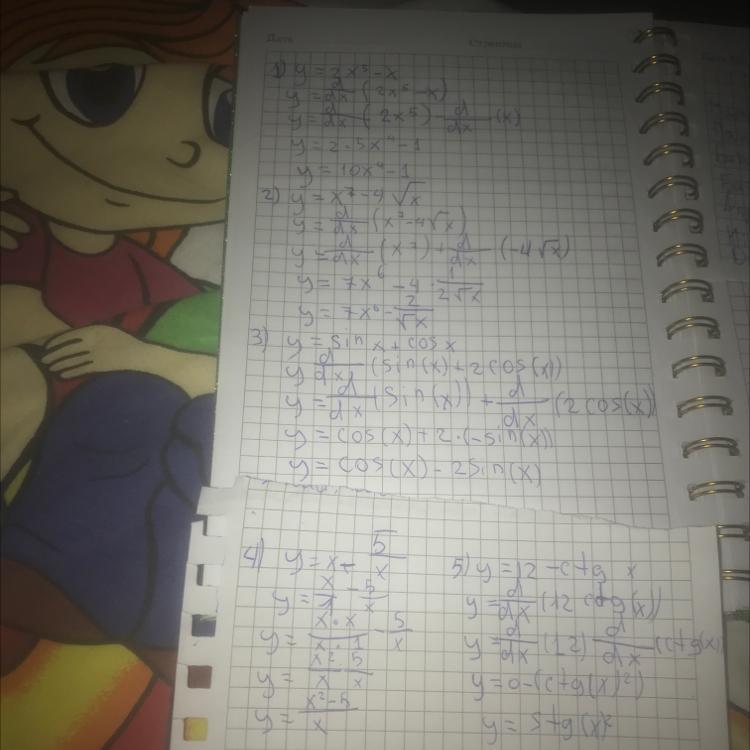 Дата Страница
1) y = 2x⁵ - x
y = d/dx (2x⁵ - x)
y = d/dx (2x⁵) - d/dx (x)
y = 2·5x⁴ - 1
y = 10x⁴ - 1
2) y = x⁷ - 4√x
y = d/dx (x⁷ - 4√x)
y = d/dx (x⁷) + d/dx (-4√x)
y = 7x⁶ - 4·1/2√x
y = 7x⁶ - 2/√x
3) y = sin x + cos x
y d/dx (sin(x) + 2cos(x))
y = d/dx (sin(x)) + d/dx (2cos(x)
y = cos(x) + 2·(-sin(x))
y = cos(x) - 2sin(x)
4) y = x - 5/x
y = x/1 - 5/x
y = x·x/x·1 - 5/x
y = x²/x - 5/x
y = x²-5/x
5) y = 12 - ctg x
y = d/dx (12 ctg(x))
y = d/dx (12) d/dx (ctg(x)
y = 0 - (ctg(x)²)
y = stg(x)²